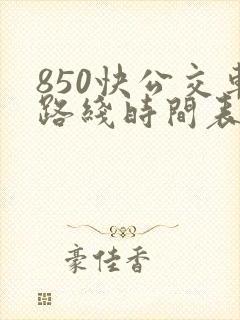 850快公交車
路綫時間表
豪佳香